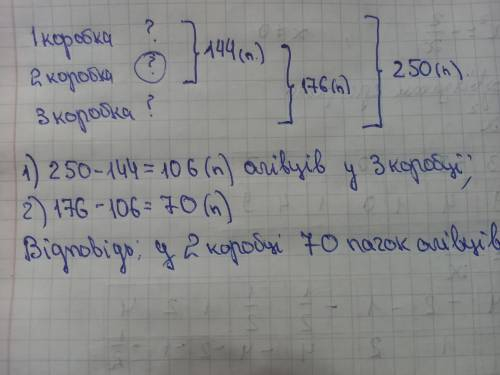 1 коробка ? } 144 (п.)
2 коробка ? } 176 (п) } 250 (п).
3 коробка ?
1) 250-144=106 (п) олівців у 3 коробці;
2) 176-106=70 (п)
Відповідь: у 2 коробці 70 пачок олівців